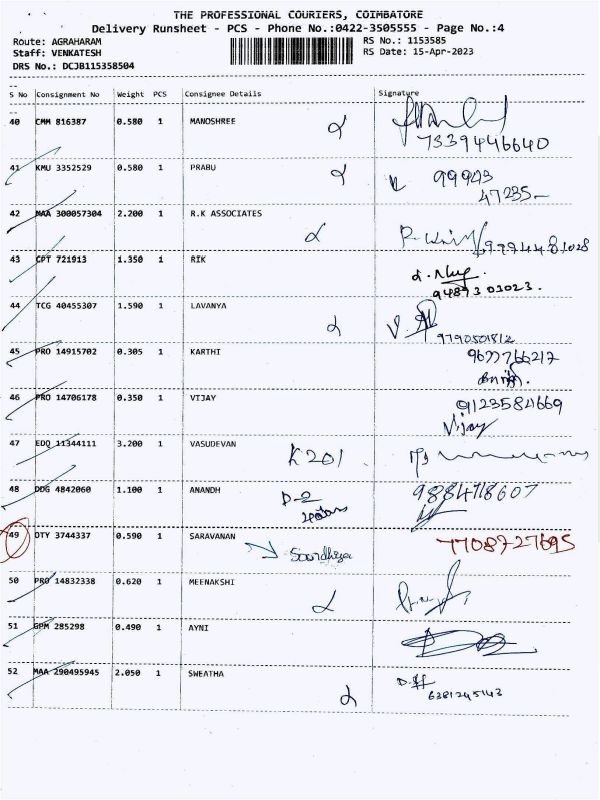 THE PROFESSIONAL COURIERS, COIMBATORE
Delivery Runsheet - PCS - Phone No.:0422-3505555 - Page No.:4
Route: AGRAHARAM
Staff: VENKATESH
DRS No.: DCJB115358504
RS No.: 1153585
RS Date: 15-Apr-2023
S No Consignment No Weight PCS Consignee Details Signature
40 CMM 816387 0.580 1 MANOSHREE
7339446640
41 KMU 3352529 0.580 1 PRABU
99943
47235
42 MAA 300057304 2.200 1 R.K ASSOCIATES
9994481028
43 CPT 721913 1.350 1 RIK
9487303023.
44 TCG 40455307 1.590 1 LAVANYA
9790501812
45 PRO 14915702 0.305 1 KARTHI
9677766217
46 PRO 14706178 0.350 1 VIJAY
9123584669
Vijay
47 EDQ 11344111 3.200 1 VASUDEVAN K201
48 DDG 4842060 1.100 1 ANANDH D-2
9884718607
49 DTY 3744337 0.590 1 SARAVANAN
7708727695
50 PRO 14832338 0.620 1 MEENAKSHI
51 GPM 285298 0.490 1 AYNI
52 MAA 290495945 2.050 1 SWEATHA
6381245143